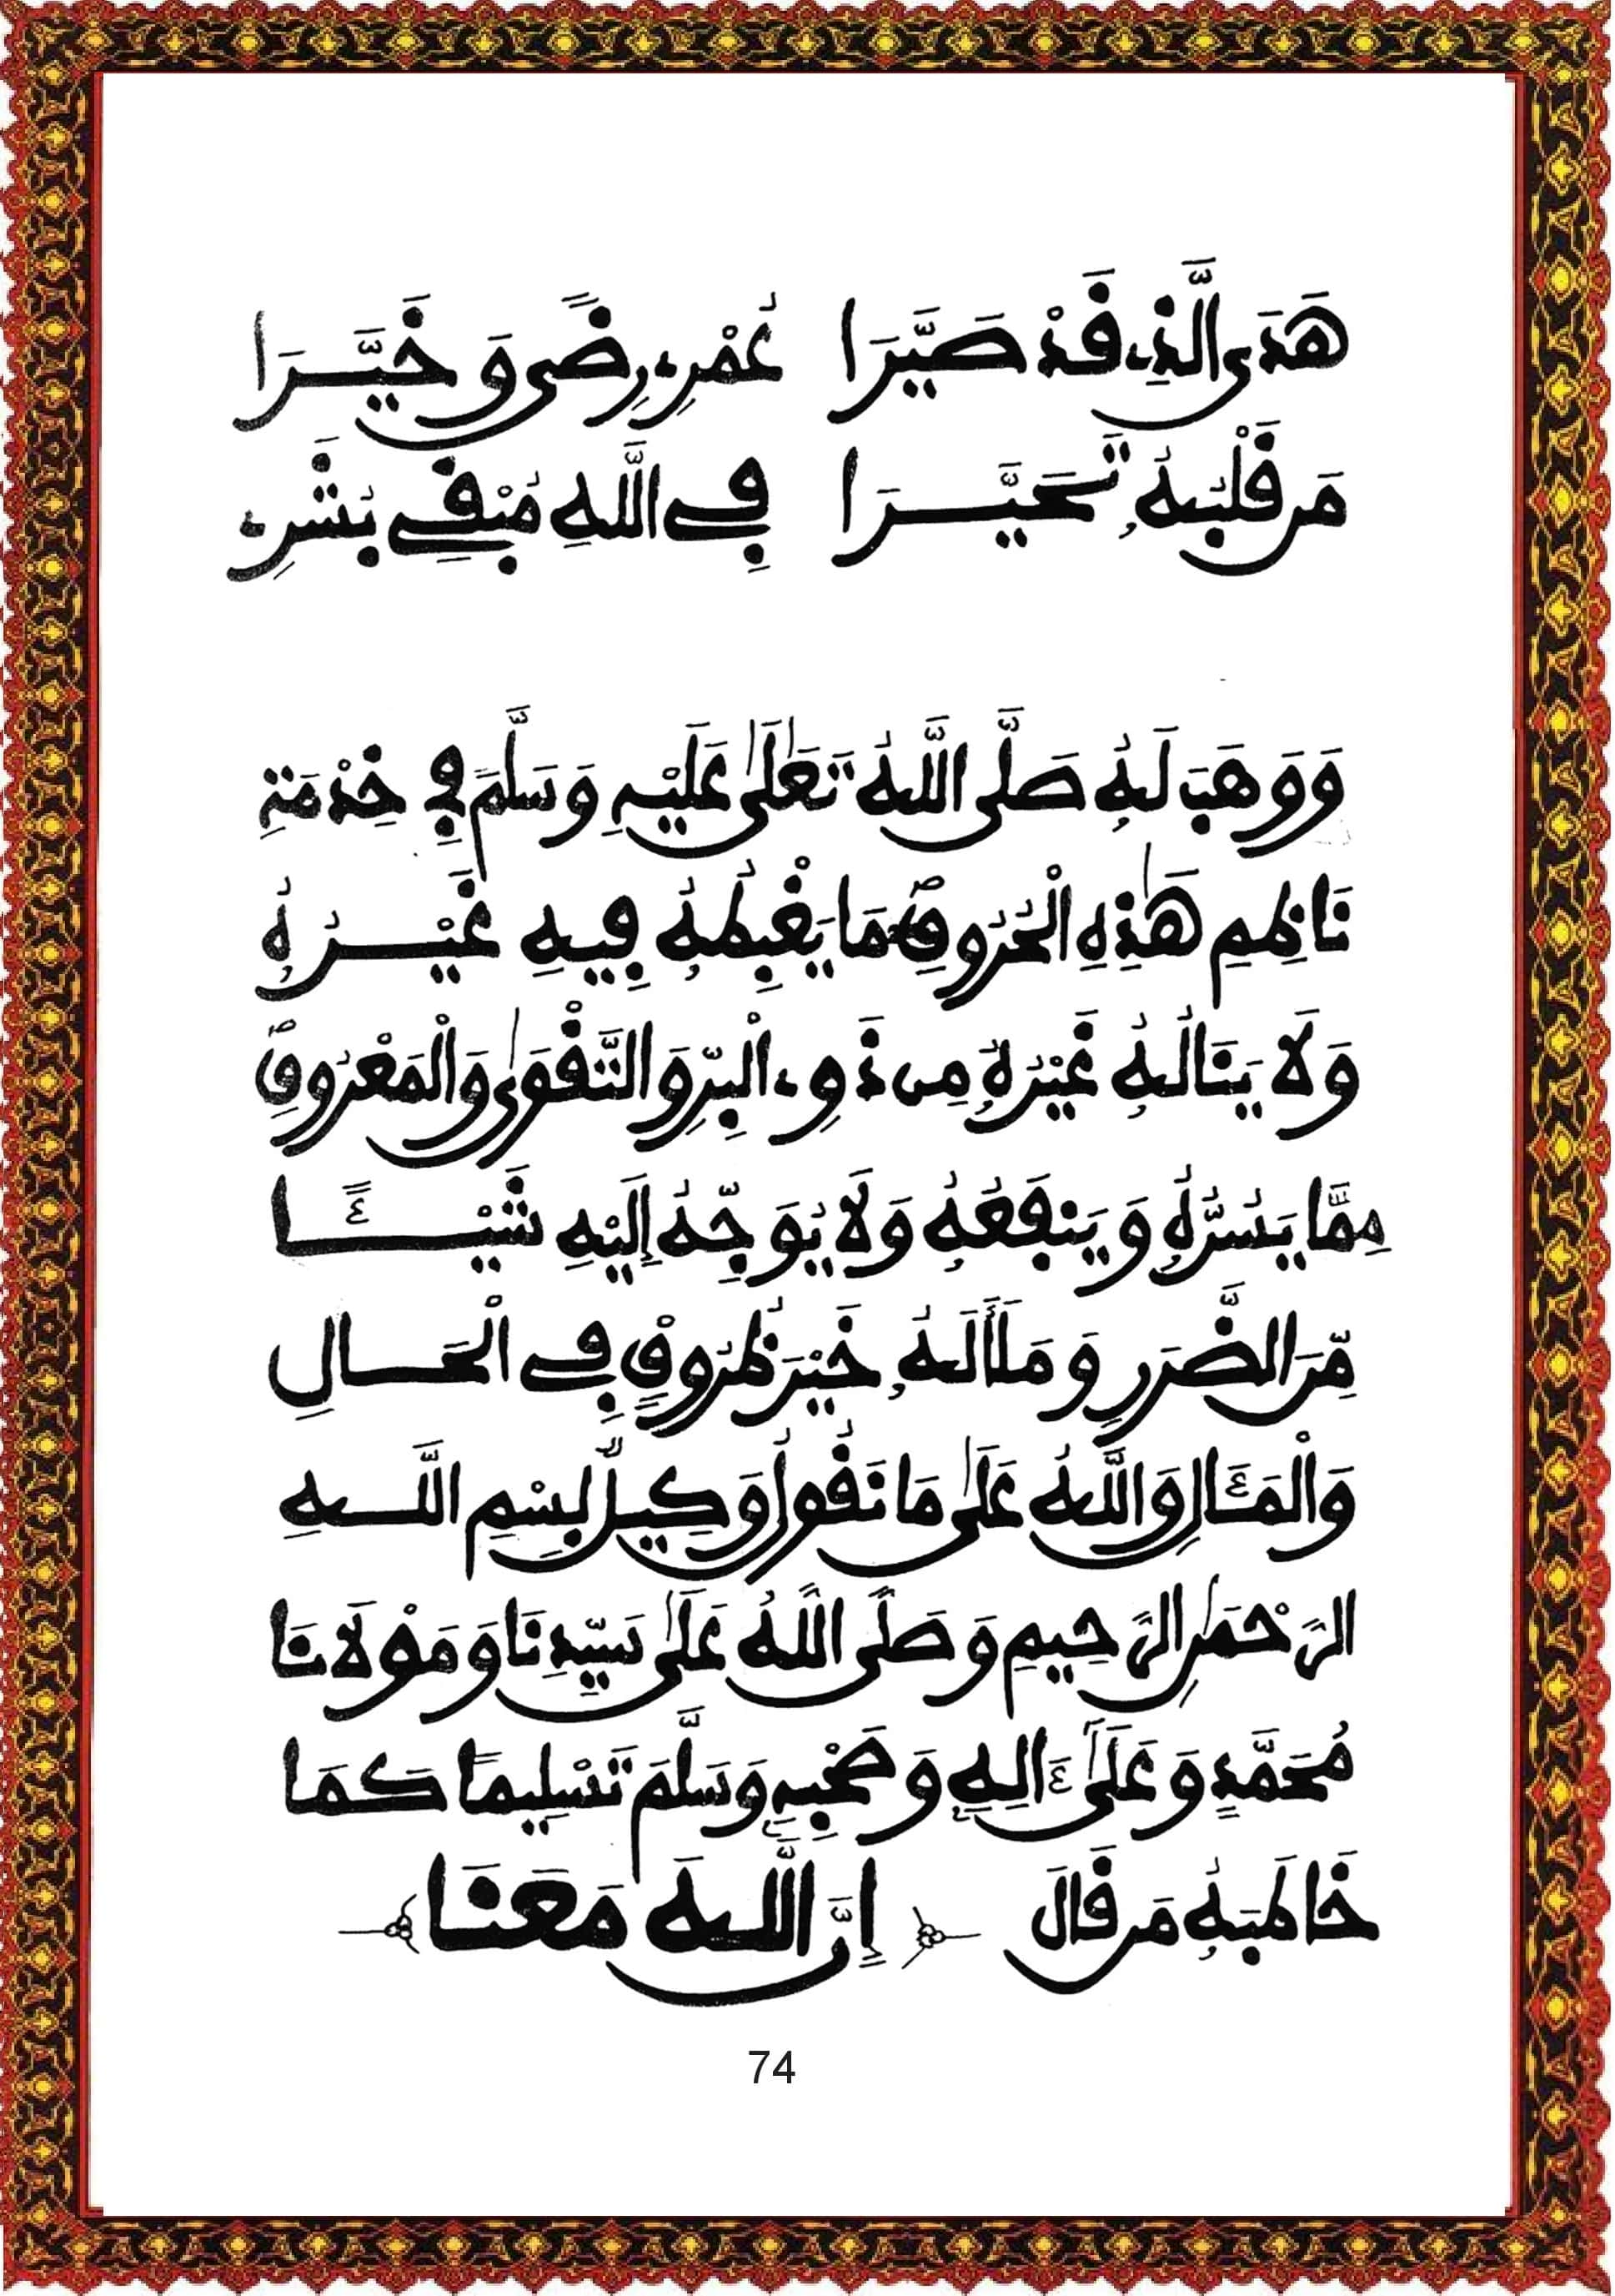 هَدَى الَّذِي قَدْ صَيَّرَا عُمْرِي رِضًى وَخَيَّرَا
مَن قَلْبُهُ تَحَيَّرَا فِي اللَّهِ مُبْقِي بُشَرِي
وَوَهَبَ لَهُ صَلَّى اللَّهُ تَعَالَى عَلَيْهِ وَسَلَّمَ فِي خِدْمَةِ
نَاظِمِ هَٰذِهِ الْحُرُوفِ مَا يَغْبِطُهُ فِيهِ غَيْرُهُ
وَلَا يَنَالُهُ غَيْرُهُ مِن ذَوِي الْبِرِّ وَالتَّقْوَىٰ وَالْمَعْرُوفِ
مِمَّا يَسُرُّهُ وَيَنفَعُهُ وَلَا يُوَجِّهُ إِلَيْهِ شَيْئًا
مِّنَ الضَّرَرِ وَمَلَأَ لَهُ خَيْرَ ظُرُوفٍ فِي الْحَالِ
وَالْمَئَالِ وَاللَّهُ عَلَىٰ مَا نَقُولُ وَكِيلٌ بِسْمِ اللَّهِ
الرَّحْمَٰنِ الرَّحِيمِ وَصَلَّى اللَّهُ عَلَىٰ سَيِّدِنَا وَمَوْلَانَا
مُحَمَّدٍ وَعَلَىٰ ءَالِهِ وَصَحْبِهِ وَسَلَّمَ تَسْلِيمًا كَمَا
خَاطَبَهُ مَن قَالَ ﴿إِنَّ اللَّهَ مَعَنَا﴾
74